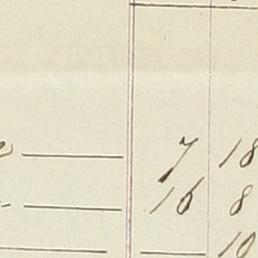 7 18
16 8
10